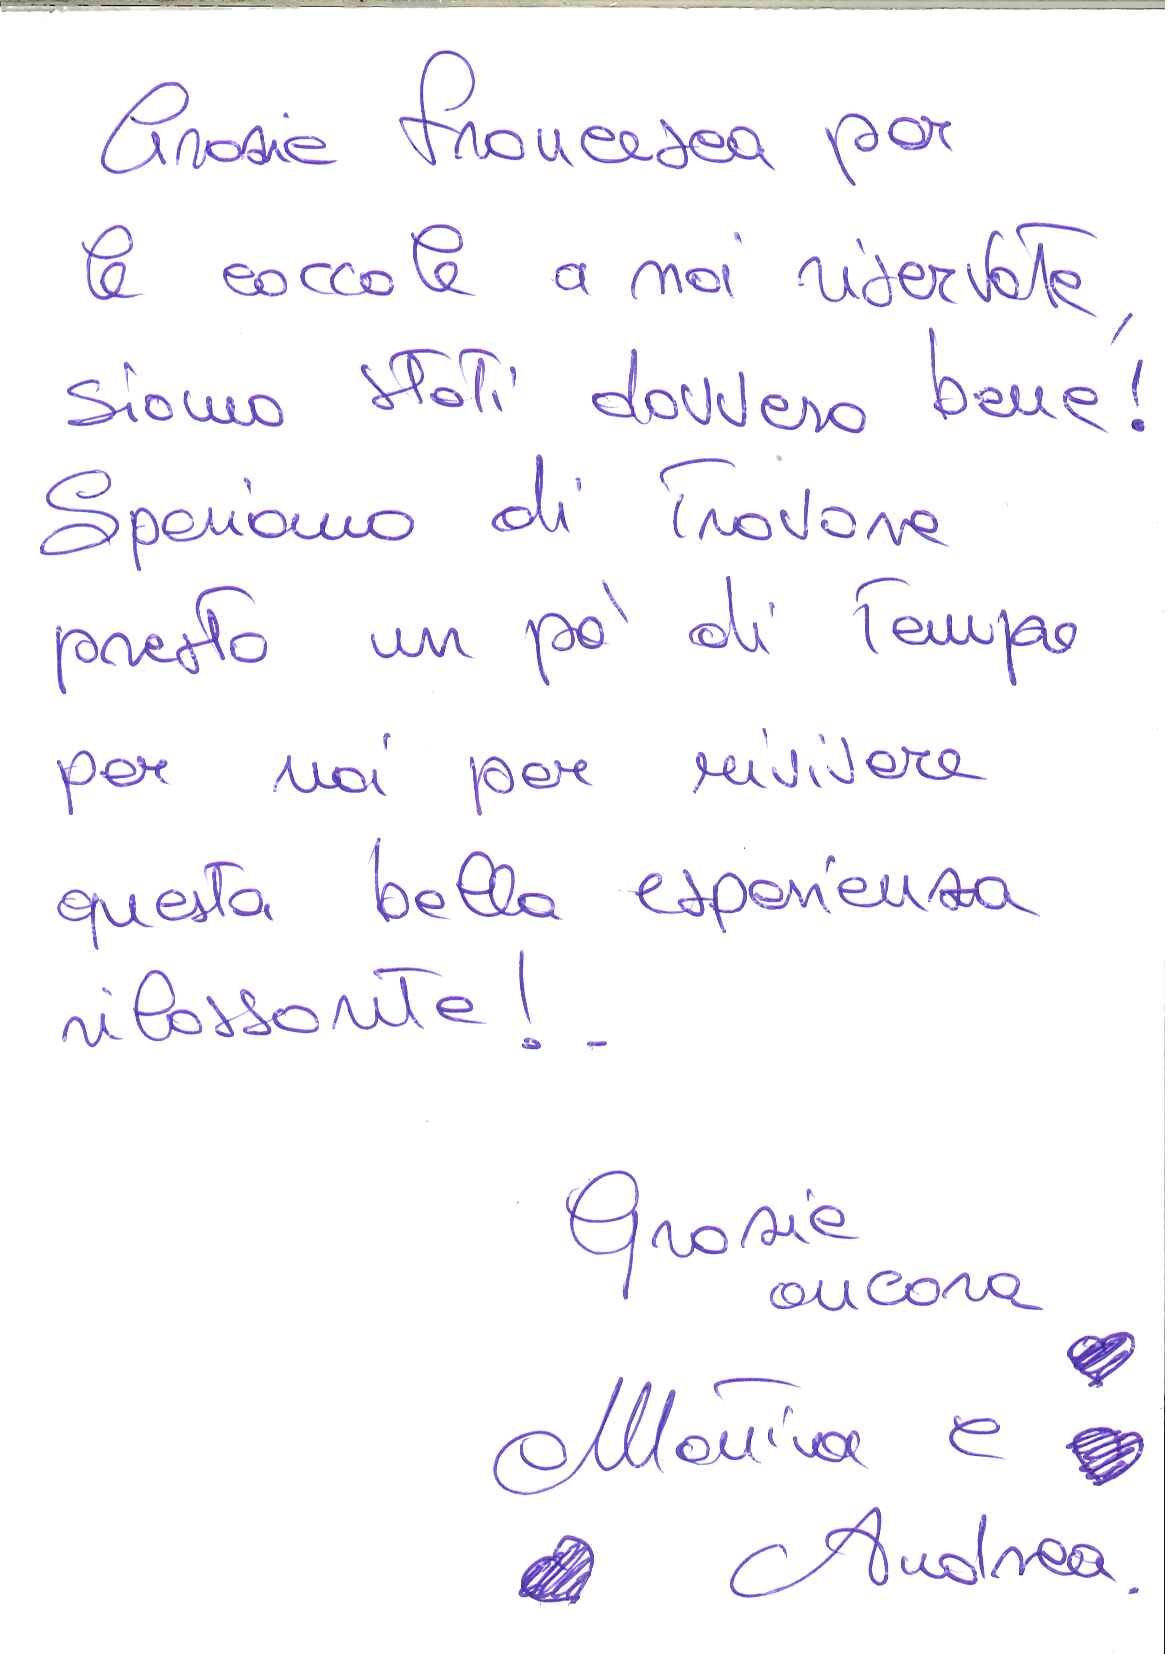 Grazie Francesca per
le coccole a noi riservate,
siamo stati davvero bene!
Speriamo di trovare
presto un pò di tempo
per noi per rivivere
questa bella esperienza
rilassante! -
Grazie
ancora
Martina e
Andrea.